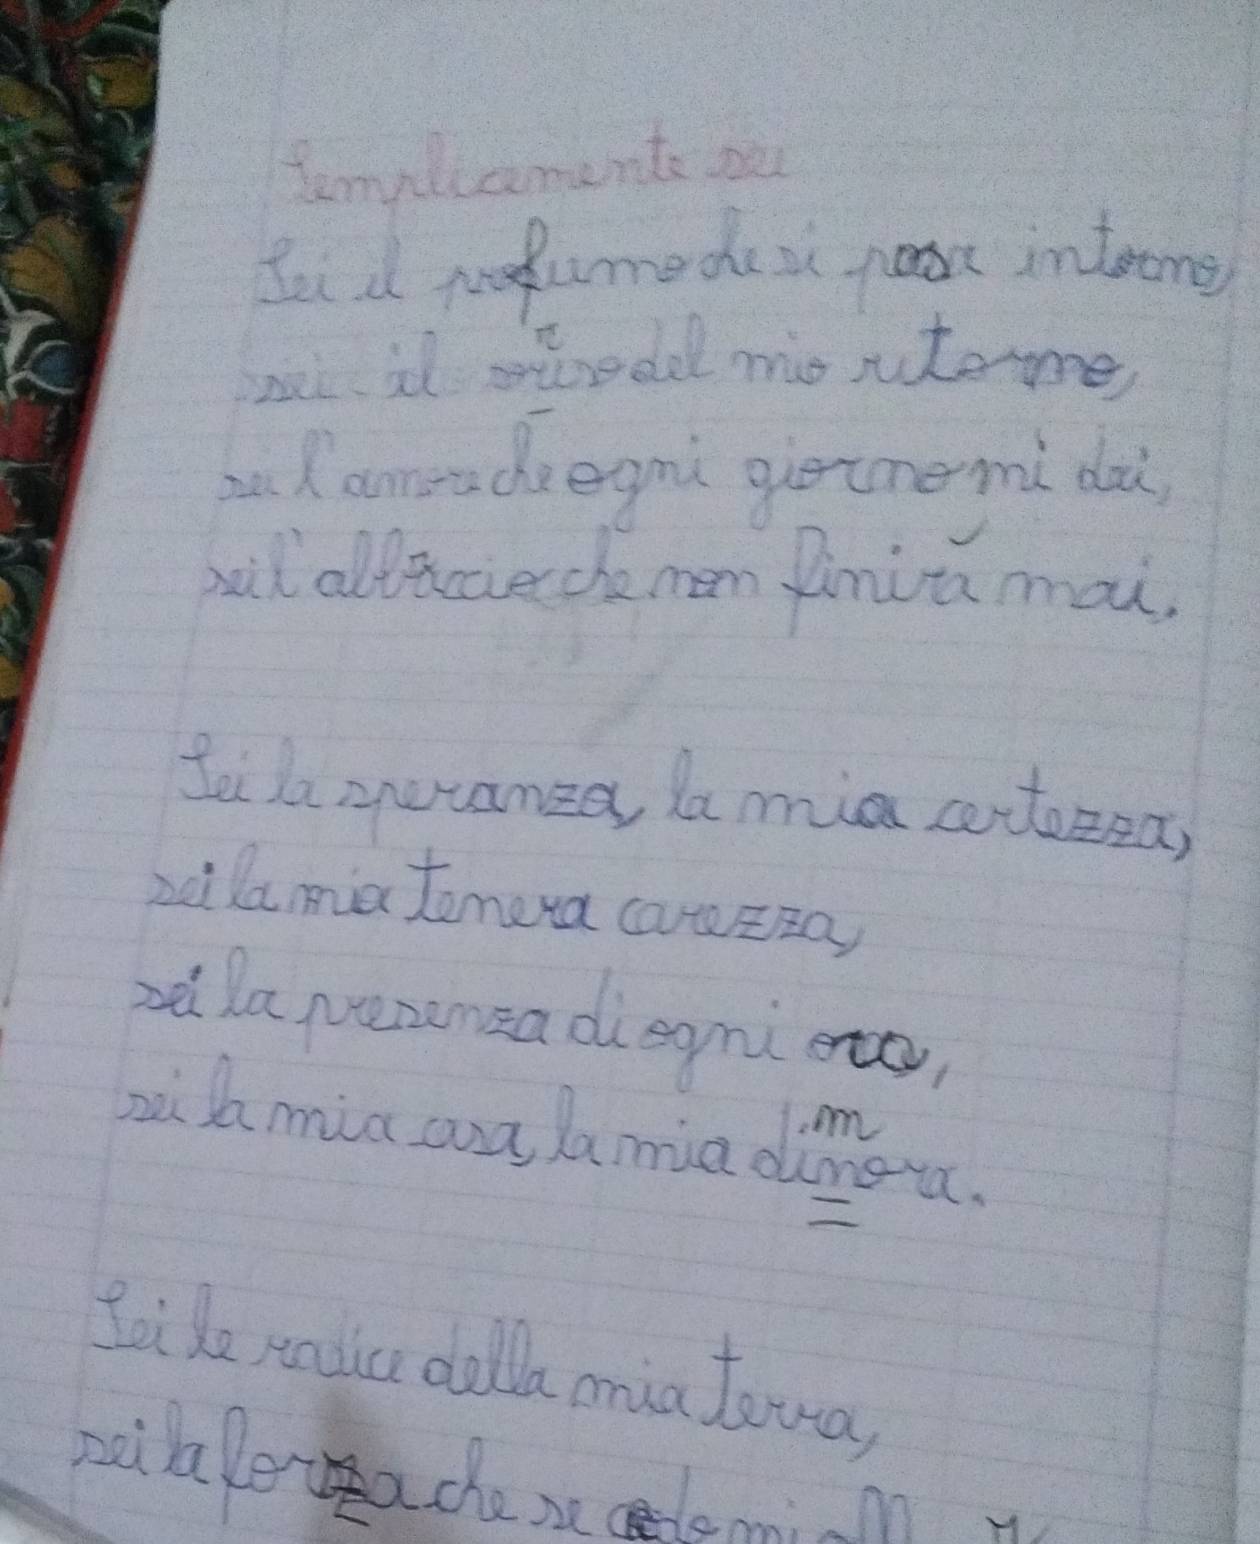 Semplicemente sei
Sei il profumo che si posa intorno,
sei il sorriso del mio ritorno,
sei l'amore che ogni giorno mi dai,
sei l'abbraccio che non finirà mai.
Sei la speranza, la mia certezza,
sei la mia tenera carezza,
sei la presenza di ogni ora,
sei la mia casa, la mia dimora.
Sei le radici della mia terra,
sei la forza che se cado mi